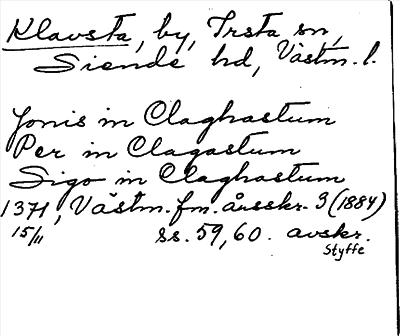 Klavsta, by, Irsta sn,
Siende hd, Västm. l.
Jonis in Claghastum
Per in Clagastum
Sigo in Claghastum
1371, Västm. fm. årsskr. 3 (1884)
15/11 ss. 59, 60. avskr.
Styffe